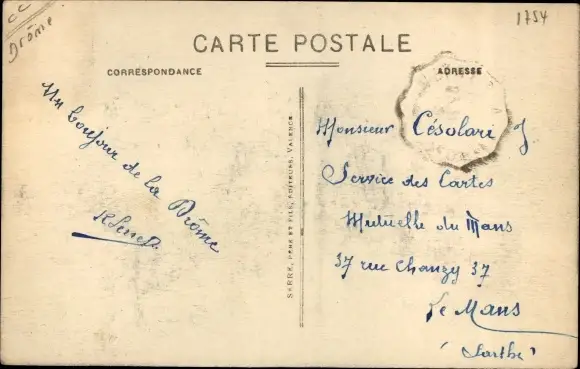 Drôme
1754
CARTE POSTALE
CORRESPONDANCE
ADRESSE
Un bonjour de la Drôme
SERRE, PÈRE ET FILS, ÉDITEURS, VALENCE.
Monsieur Césolari J
Service des Cartes
Mutuelle du Mans
37 rue Chanzy 37
Le Mans
(Sarthe)